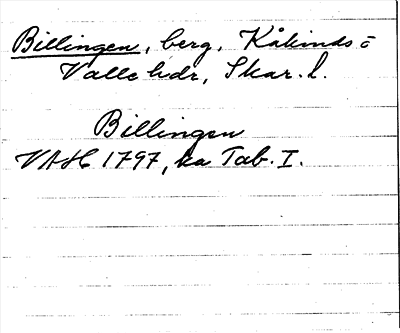 Billingen, berg, Kåkinds o
Valle hdr, Skar. l.
Billingen
VAH 1797, ka Tab. I.